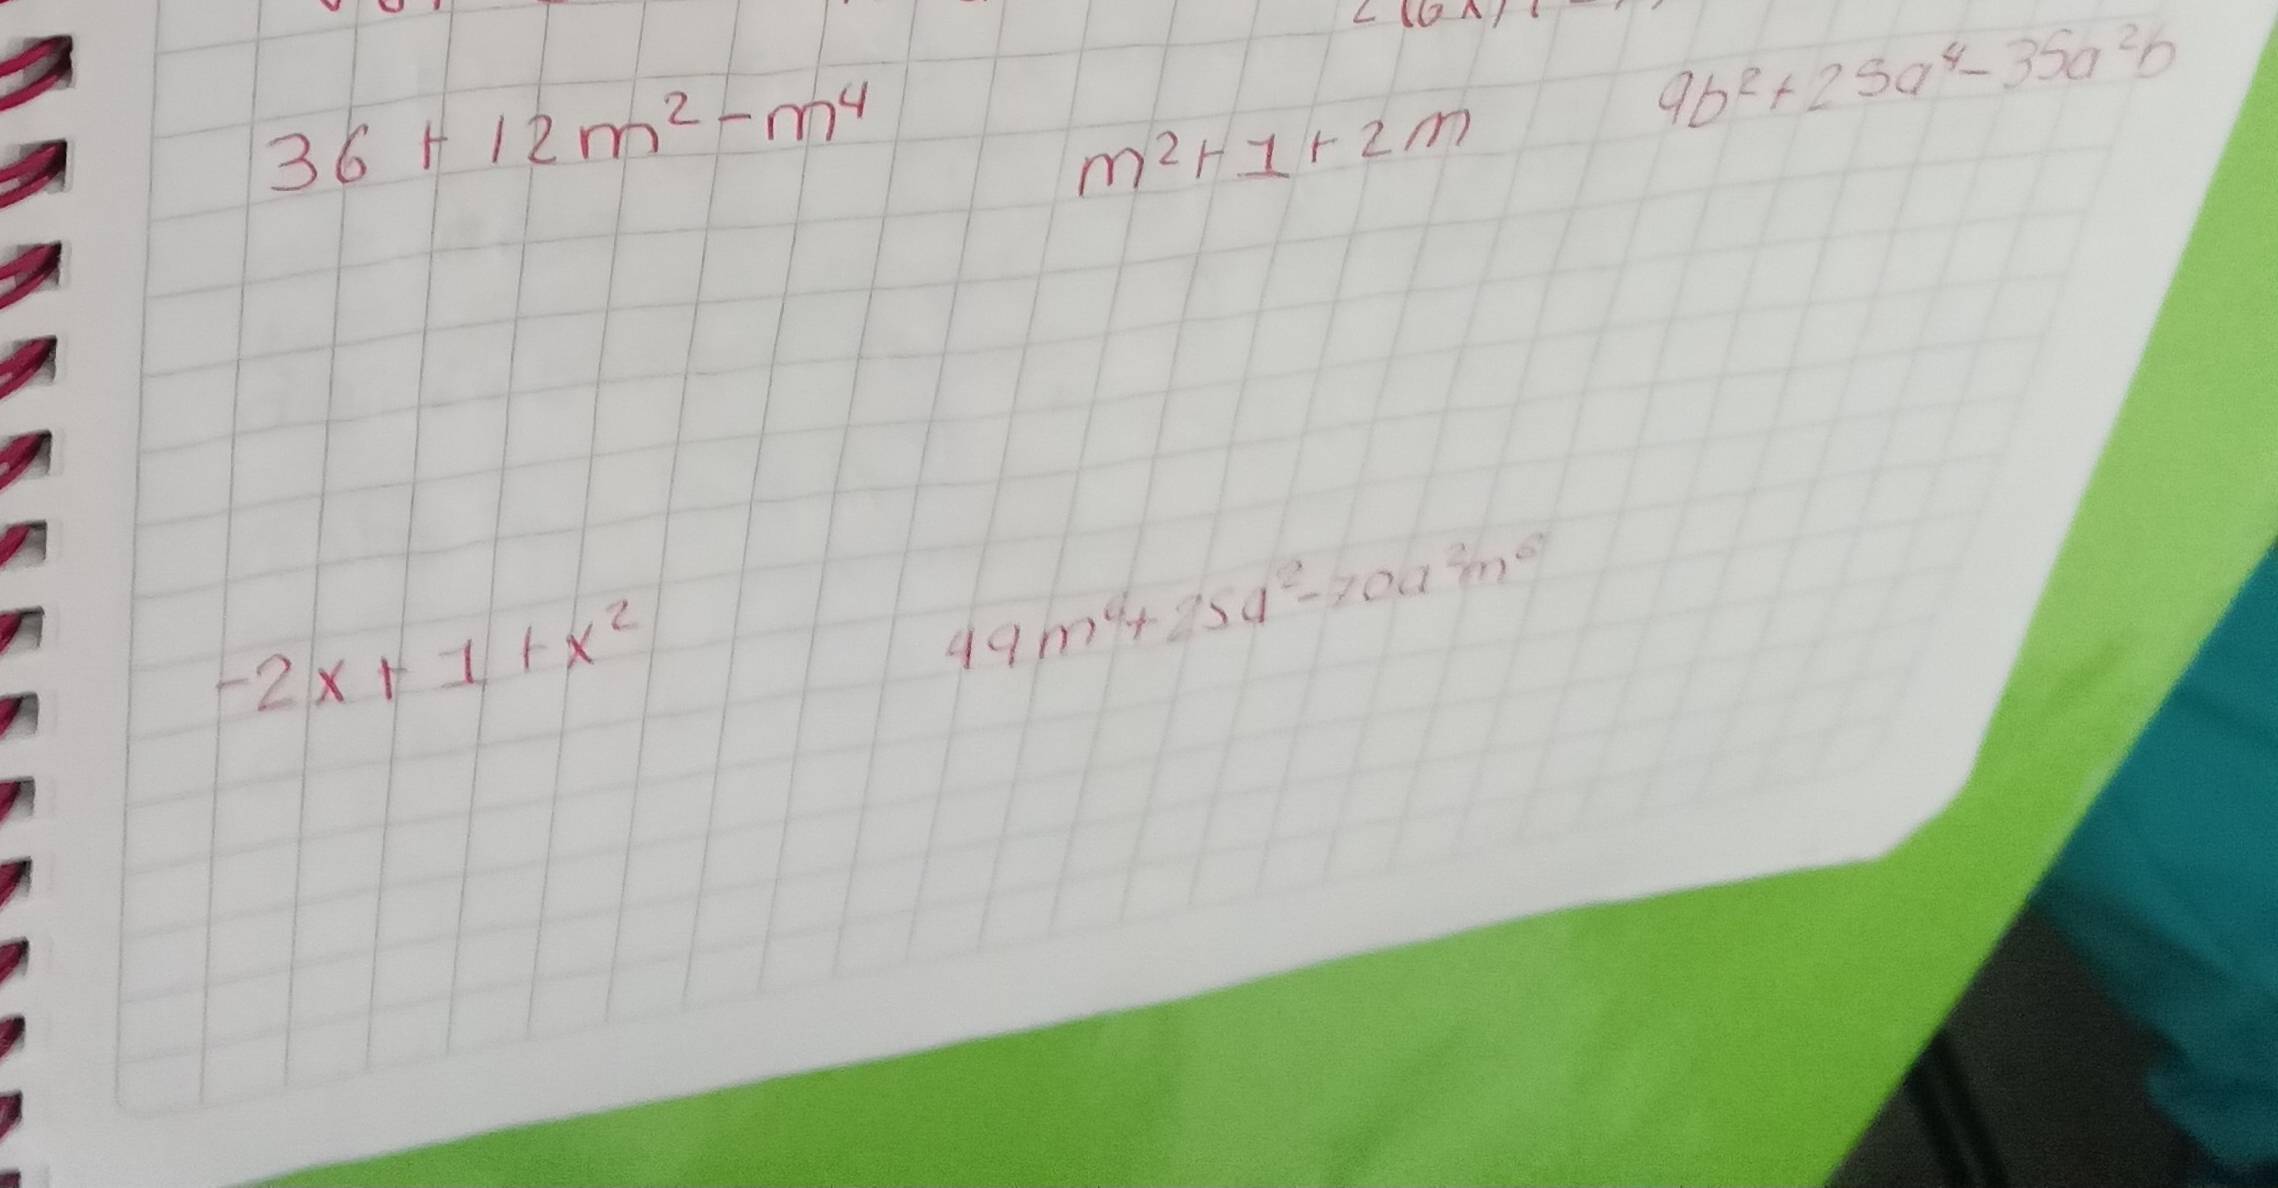 36 + 12m² - m⁴
m² + 1 + 2m
9b² + 25a⁴ - 35a²b
-2x + 1 + x²
49m⁴ + 25a² - 70a²m⁶